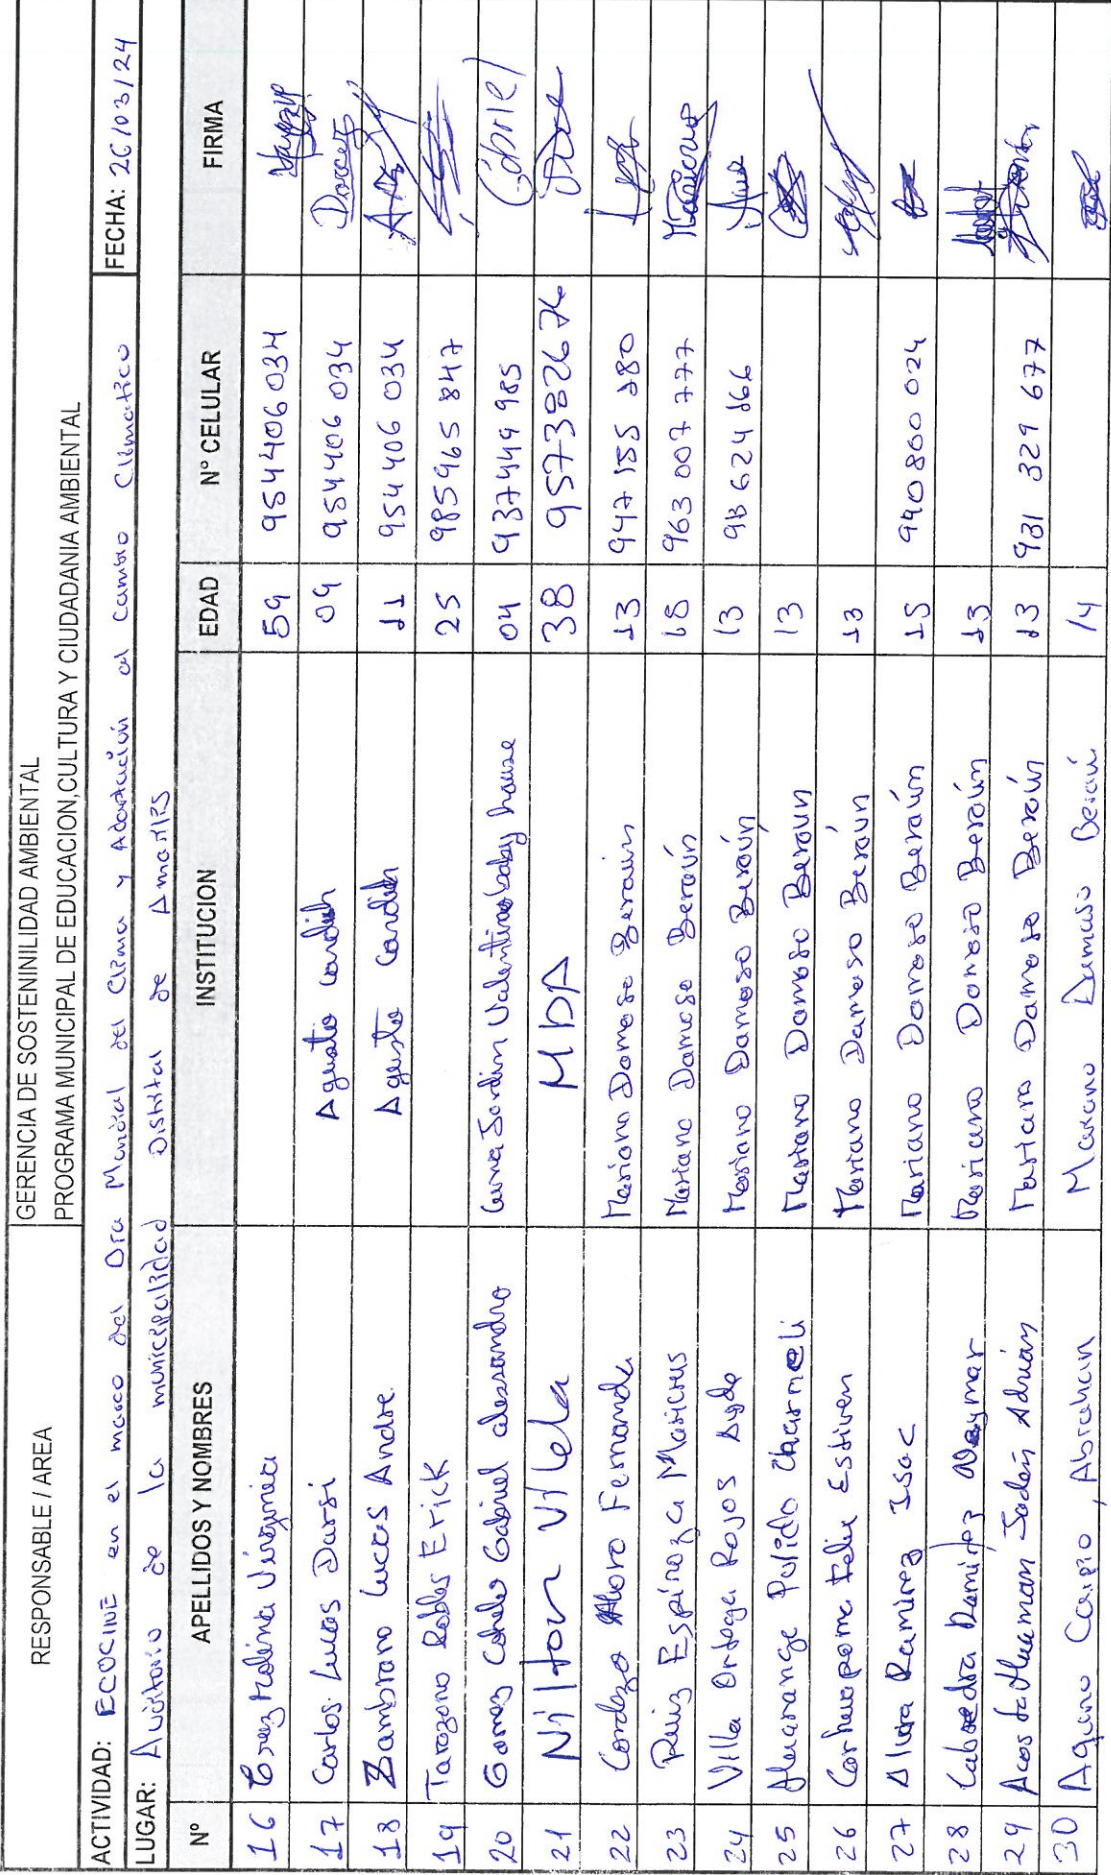 RESPONSABLE / AREA
GERENCIA DE SOSTENINILIDAD AMBIENTAL
PROGRAMA MUNICIPAL DE EDUCACION,CULTURA Y CIUDADANIA AMBIENTAL
ACTIVIDAD: ECOCINE en el marco del Dia Mundial del Clima y Adaptación al Cambio Climatico FECHA: 26/03/24
LUGAR: Auditorio de la municipalidad Distrital de Amarilis
N° APELLIDOS Y NOMBRES INSTITUCION EDAD N° CELULAR FIRMA
16 Molina Virginia 59 954406034
17 Carlos Lucas Darsi Agusto Cardich 09 954406 034
18 Zambrano Luccas Andre Agusto Cardich 11 954 406 034
19 Tarazona Robles Erick 25 985965 847
20 Gomez Gabriel alessandro Jardin Valentinos baby house 04 937449 985 Gabriel
21 Nilton Vilela MDA 38 957382676
22 Cordozo Fernanda Mariano Damaso Beraún 13 947 155 280
23 Ruiz Espinoza Maricrus Mariano Damaso Beraún 18 963 007 777 Maricrus
24 Villa Ortega Rojos Mariano Damaso Beraún 13
25 Pulido Charmeli Mariano Damaso Beraun 13
26 Felix Estiven Mariano Damaso Beraún 13
27 Ramirez Isac Mariano Damaso Beraún 15 940 800 024
28 Ramirez Neymar Mariano Damaso Beraún 13
29 Acosta Huaman Jaden Adrián Mariano Damaso Beraún 13 931 329 677
30 Aquino Carpio, Abraham Mariano Damaso Beraún 14